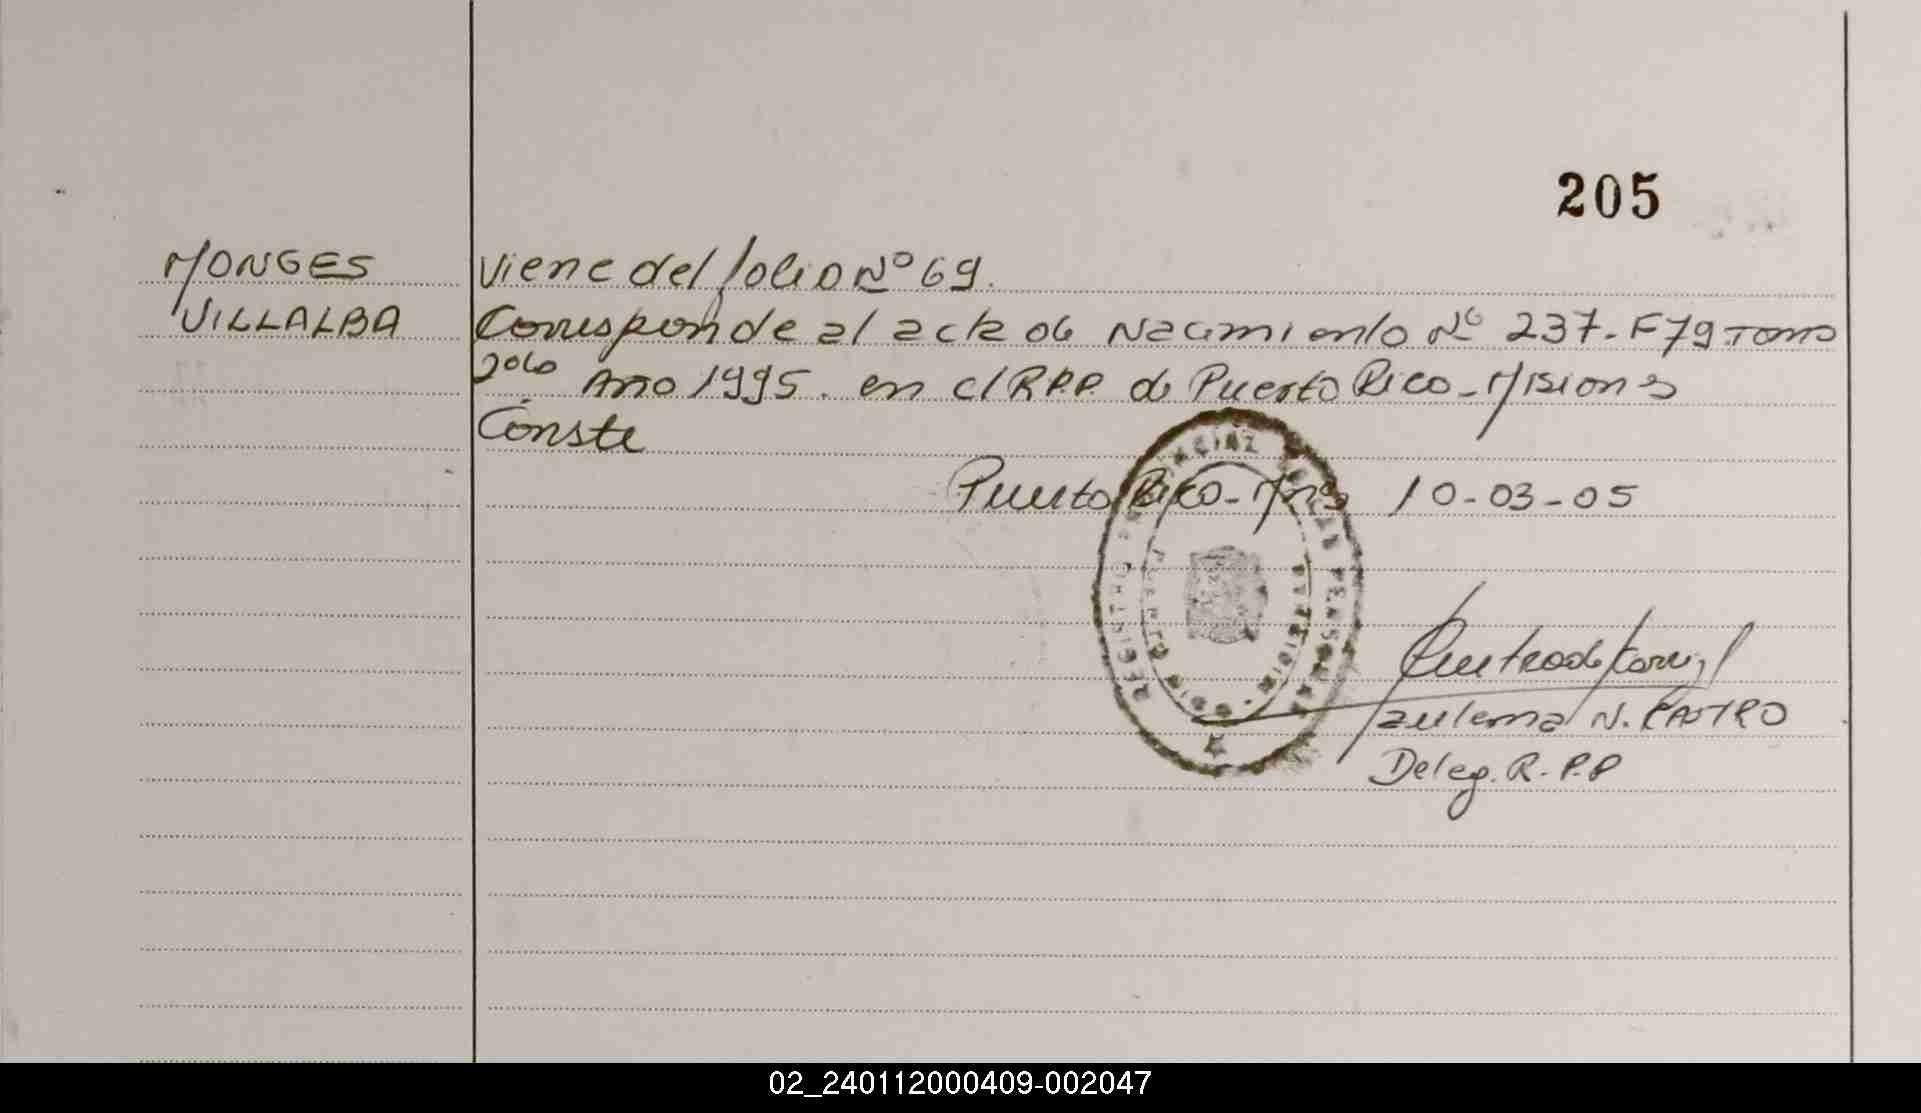 205
MONGES
VILLALBA
Viene del folio Nº 69.
Corresponde al acta de Nacimiento Nº 237-F79 Tomo
2do Año 1995. en el R.P.P. de Puerto Rico-Misiones
Conste
Puerto Rico-Mnes 10-03-05
REGISTRO PROVINCIAL DE LAS PERSONAS
Zulema N. CASTRO
Deleg. R.P.P
02_240112000409-002047